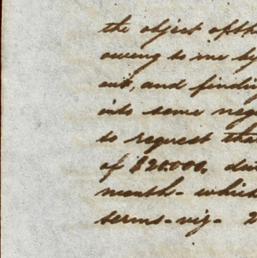 the object of the
owing to me by
out, and finding
into some neg
to request that
of $25.000, du
month - which
terms - viz - 2